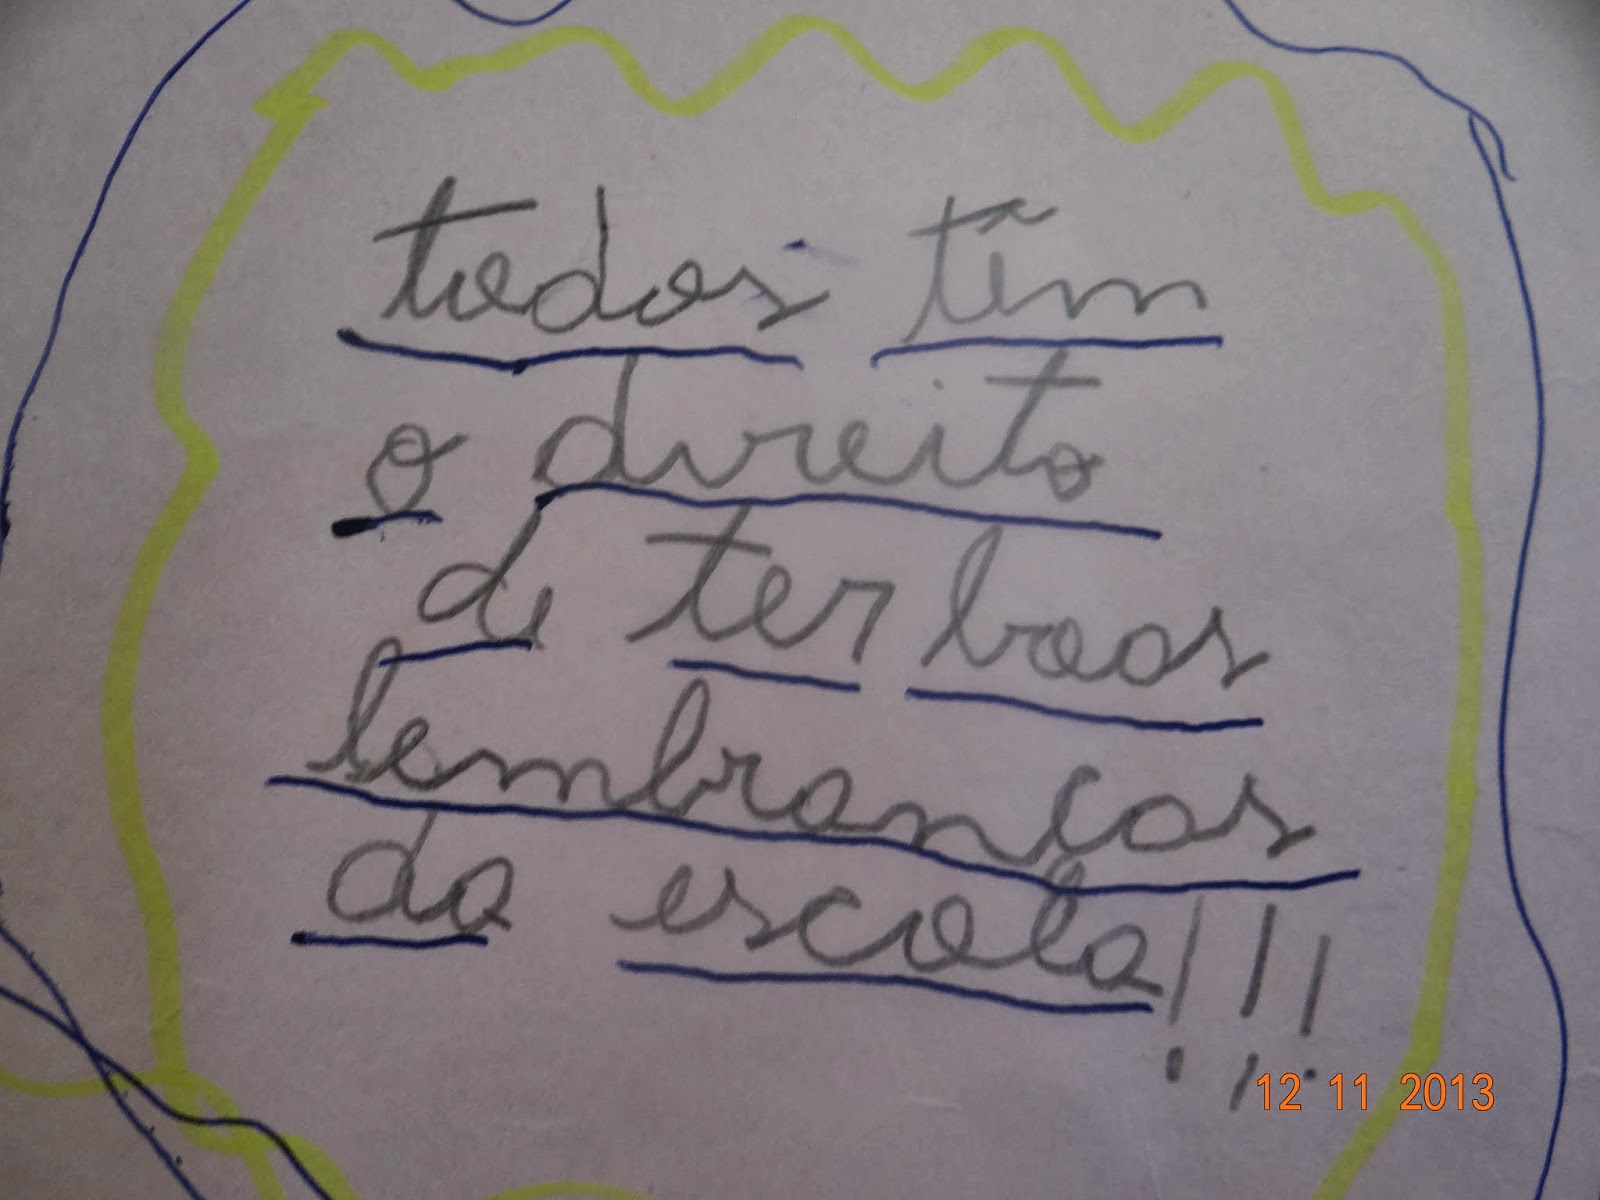 todos têm
o direito
de ter boas
lembranças
da escola!!!
12 11 2013